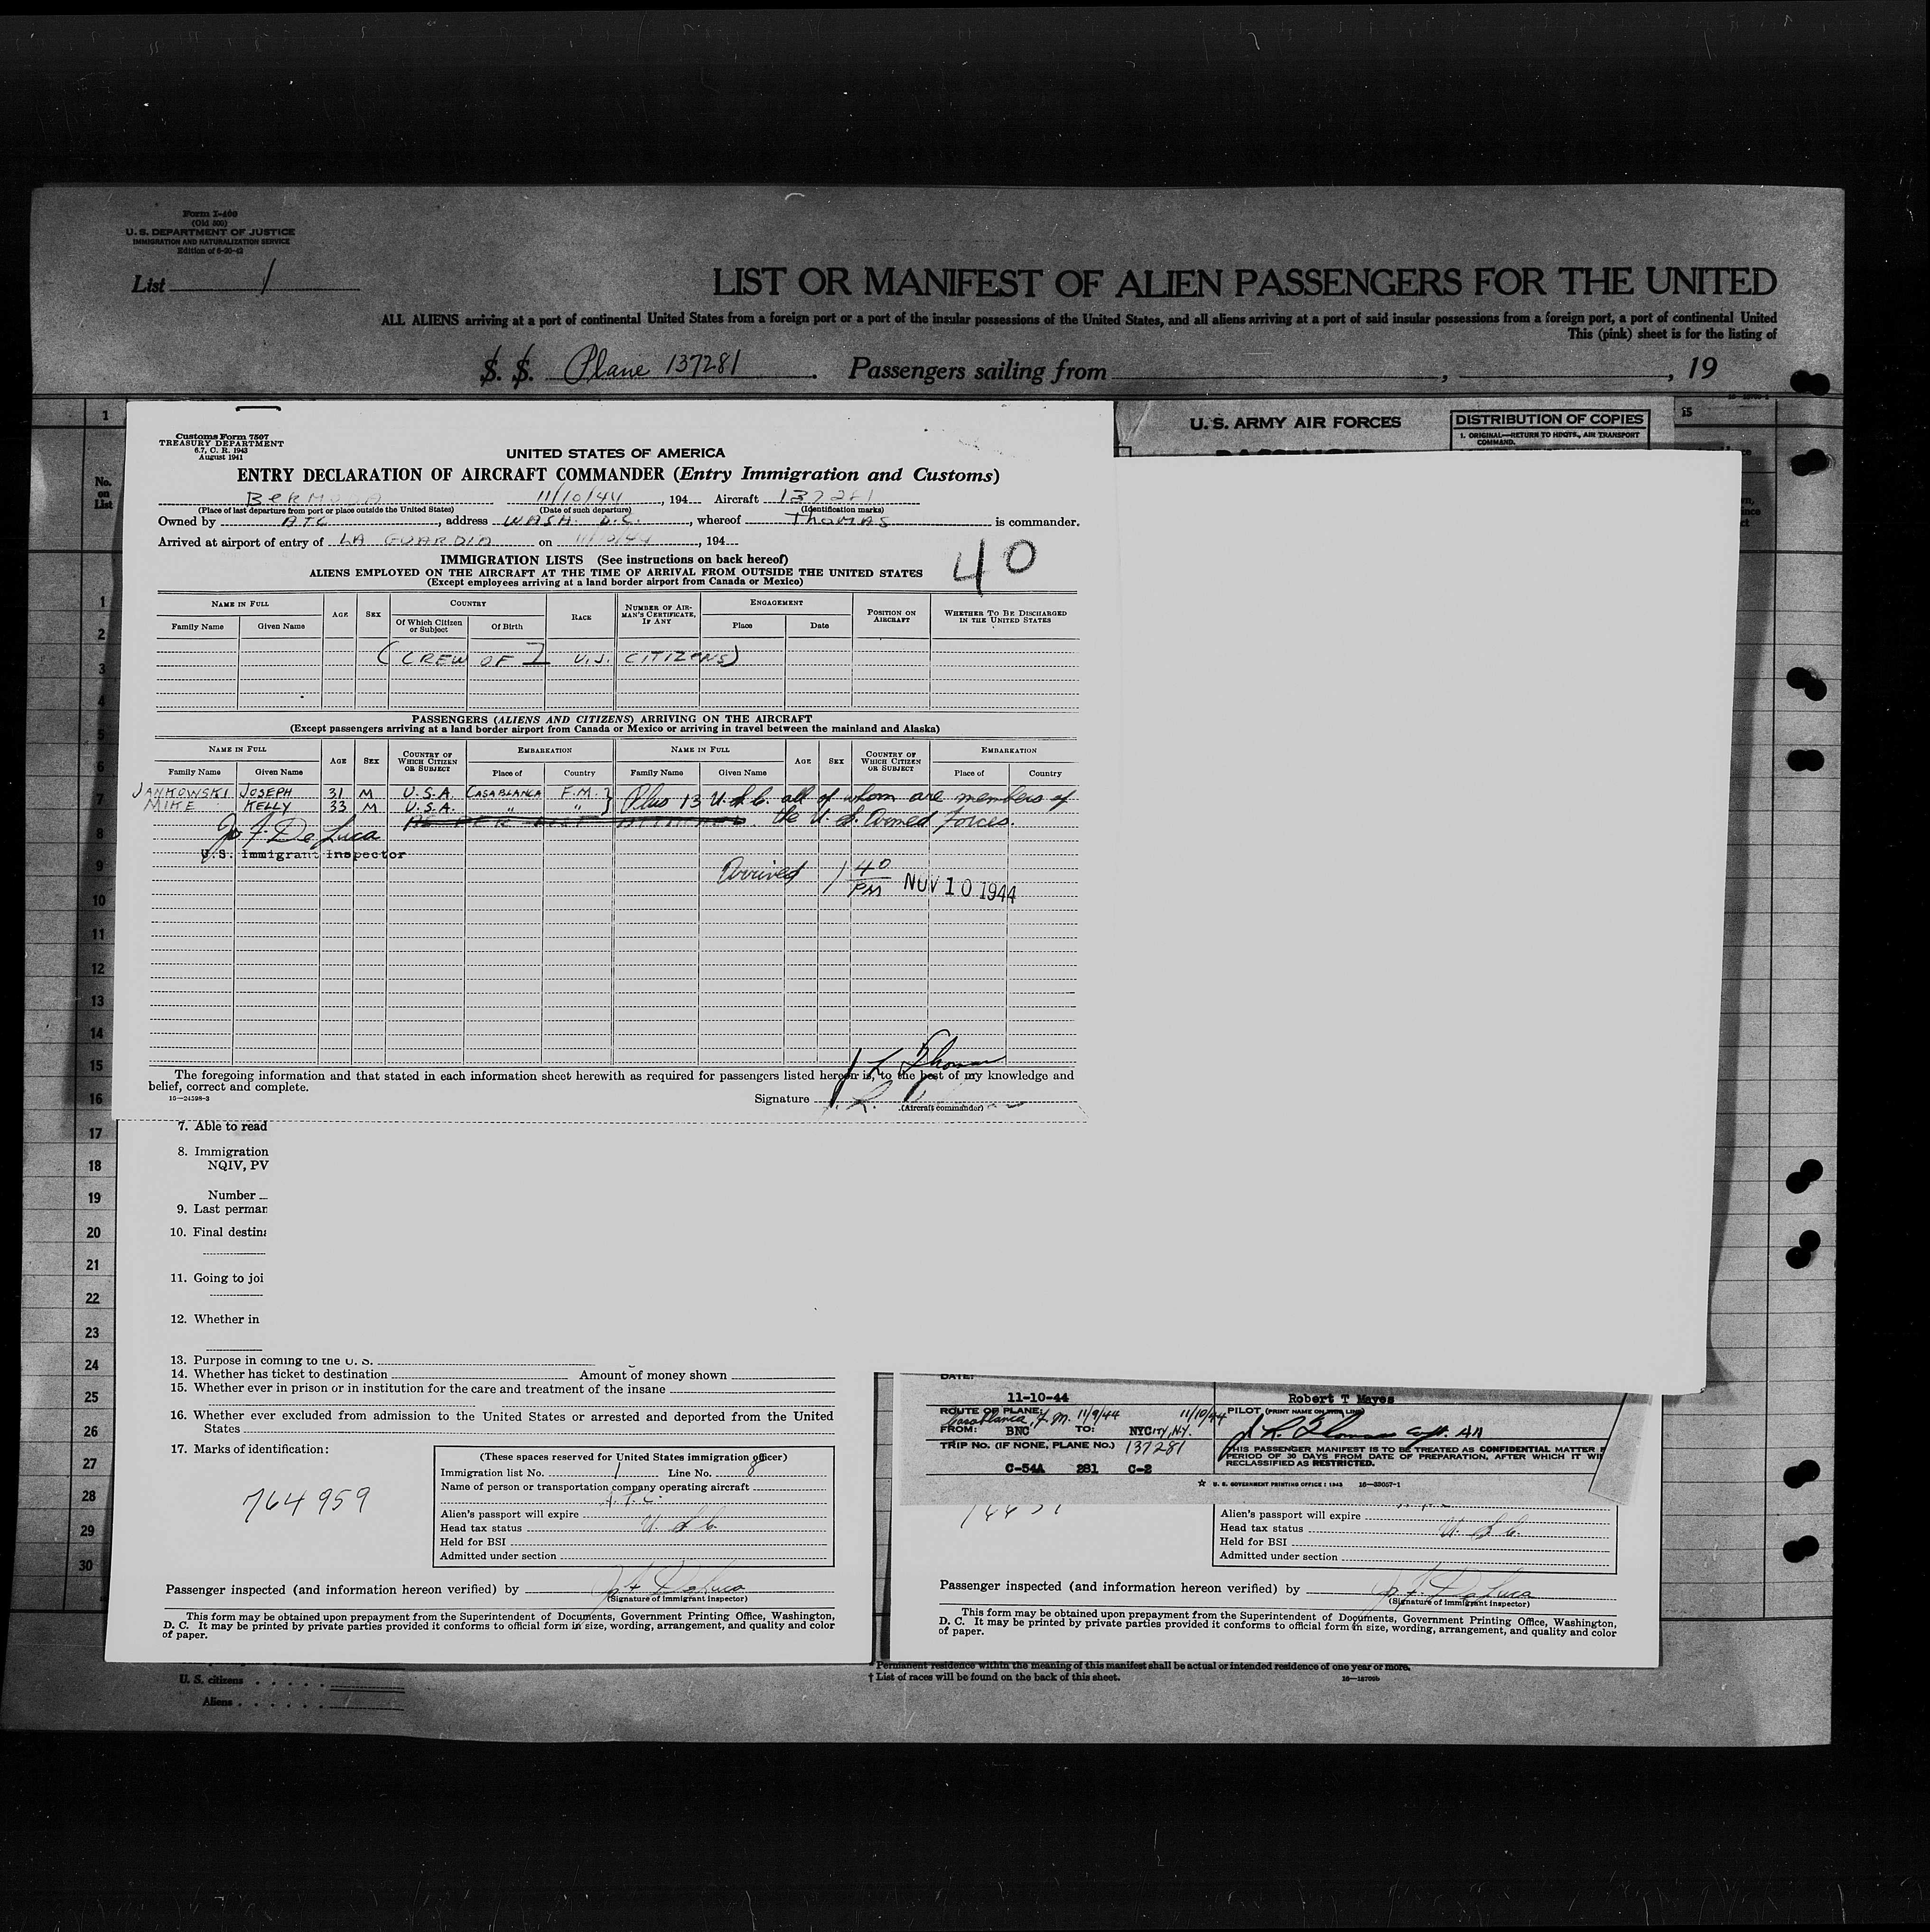 Form I-400
(Old 500)
U. S. DEPARTMENT OF JUSTICE
IMMIGRATION AND NATURALIZATION SERVICE
Edition of 6-30-43
List 1
LIST OR MANIFEST OF ALIEN PASSENGERS FOR THE UNITED
ALL ALIENS arriving at a port of continental United States from a foreign port or a port of the insular possessions of the United States, and all aliens arriving at a port of said insular possessions from a foreign port, a port of continental United
This (pink) sheet is for the listing of
S. S. Plane 137281. Passengers sailing from , , 19
1
15
No.
on
List
U. S. ARMY AIR FORCES
DISTRIBUTION OF COPIES
1. ORIGINAL—RETURN TO HDQTS., AIR TRANSPORT
COMMAND.
Customs Form 7507
TREASURY DEPARTMENT
6.7, C. R. 1943
August 1941
UNITED STATES OF AMERICA
ENTRY DECLARATION OF AIRCRAFT COMMANDER (Entry Immigration and Customs)
BERMUDA 11/10/44, 194 Aircraft 137281
(Place of last departure from port or place outside the United States) (Date of such departure) (Identification marks)
Owned by ATC, address WASH. D.C., whereof THOMAS is commander.
Arrived at airport of entry of LA GUARDIA on 11/10/44, 194
40
IMMIGRATION LISTS (See instructions on back hereof)
ALIENS EMPLOYED ON THE AIRCRAFT AT THE TIME OF ARRIVAL FROM OUTSIDE THE UNITED STATES
(Except employees arriving at a land border airport from Canada or Mexico)
NAME IN FULL AGE SEX COUNTRY RACE NUMBER OF AIRMAN'S CERTIFICATE, IF ANY ENGAGEMENT POSITION ON AIRCRAFT WHETHER TO BE DISCHARGED IN THE UNITED STATES
Family Name Given Name Of Which Citizen or Subject Of Birth Place Date
(CREW OF 7 U.S. CITIZENS)
PASSENGERS (ALIENS AND CITIZENS) ARRIVING ON THE AIRCRAFT
(Except passengers arriving at a land border airport from Canada or Mexico or arriving in travel between the mainland and Alaska)
NAME IN FULL AGE SEX COUNTRY OF WHICH CITIZEN OR SUBJECT EMBARKATION NAME IN FULL AGE SEX COUNTRY OF WHICH CITIZEN OR SUBJECT EMBARKATION
Family Name Given Name Place of Country Family Name Given Name Place of Country
JANKOWSKI JOSEPH 31 M U.S.A. CASABLANCA F.M. } Plus 13 U.S.C. all of whom are members of
MIKE KELLY 33 M U.S.A. " "
the U.S. Armed Forces.
Jos F. De Luca
U.S. Immigrant Inspector
Arrived 1 40 PM NOV 10 1944
The foregoing information and that stated in each information sheet herewith as required for passengers listed hereon is, to the best of my knowledge and
belief, correct and complete.
16—24598-3
Signature
(Aircraft commander)
1
2
3
4
5
6
7
8
9
10
11
12
13
14
15
16
17
18
19
20
21
22
23
24
25
26
27
28
29
30
7. Able to read
8. Immigration
NQIV, PV
Number
9. Last perman
10. Final destina
11. Going to joi
12. Whether in
13. Purpose in coming to the U. S.
14. Whether has ticket to destination Amount of money shown
15. Whether ever in prison or in institution for the care and treatment of the insane
16. Whether ever excluded from admission to the United States or arrested and deported from the United
States
17. Marks of identification:
764959
(These spaces reserved for United States immigration officer)
Immigration list No. 1 Line No. 8
Name of person or transportation company operating aircraft
A.T.C.
Alien's passport will expire
Head tax status U. S. C.
Held for BSI
Admitted under section
Passenger inspected (and information hereon verified) by Jos F. De Luca
(Signature of immigrant inspector)
This form may be obtained upon prepayment from the Superintendent of Documents, Government Printing Office, Washington,
D. C. It may be printed by private parties provided it conforms to official form in size, wording, arrangement, and quality and color
of paper.
DATE:
11-10-44
Robert T Mayes
ROUTE OF PLANE:
Casablanca, F.M. 11/9/44 11/10/44
FROM: BNC TO: NYCITY, N.Y.
PILOT (PRINT NAME ON THIS LINE)
TRIP NO. (IF NONE, PLANE NO.) 137281
C-54A 281 C-2
THIS PASSENGER MANIFEST IS TO BE TREATED AS CONFIDENTIAL MATTER F
PERIOD OF 30 DAYS FROM DATE OF PREPARATION, AFTER WHICH IT WI
RECLASSIFIED AS RESTRICTED.
☆ U. S. GOVERNMENT PRINTING OFFICE : 1943 16—33057-1
Alien's passport will expire
Head tax status U. S. C.
Held for BSI
Admitted under section
Passenger inspected (and information hereon verified) by Jos F. De Luca
(Signature of immigrant inspector)
This form may be obtained upon prepayment from the Superintendent of Documents, Government Printing Office, Washington,
D. C. It may be printed by private parties provided it conforms to official form in size, wording, arrangement, and quality and color
of paper.
* Permanent residence within the meaning of this manifest shall be actual or intended residence of one year or more.
† List of races will be found on the back of this sheet.
U. S. citizens
Aliens